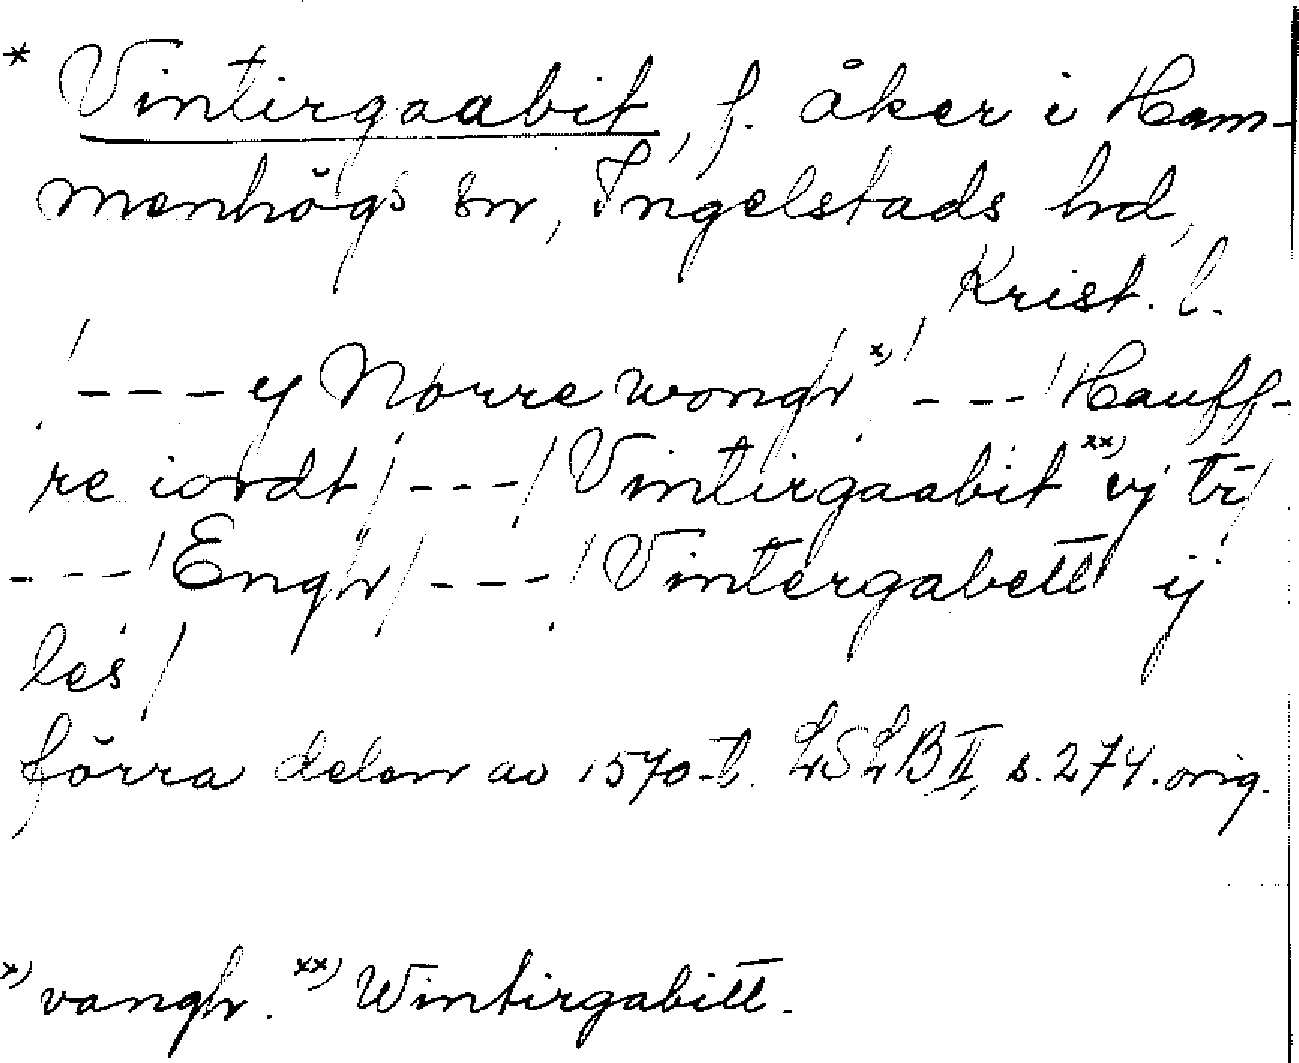 * Vintirgaabit, f. åker i Ham-
menhögs sn, Ingelstads hd,
Krist. l.
/--- y Norre wongh x) / --- / Hauff-
re iordt / --- / Vintirgaabit xx) vj tr /
--- / Engh / --- / Vintergabett ij
les /
förra delen av 1570-t. LSLB II, s. 274. orig.
x) vangh. xx) Wintirgabitt.